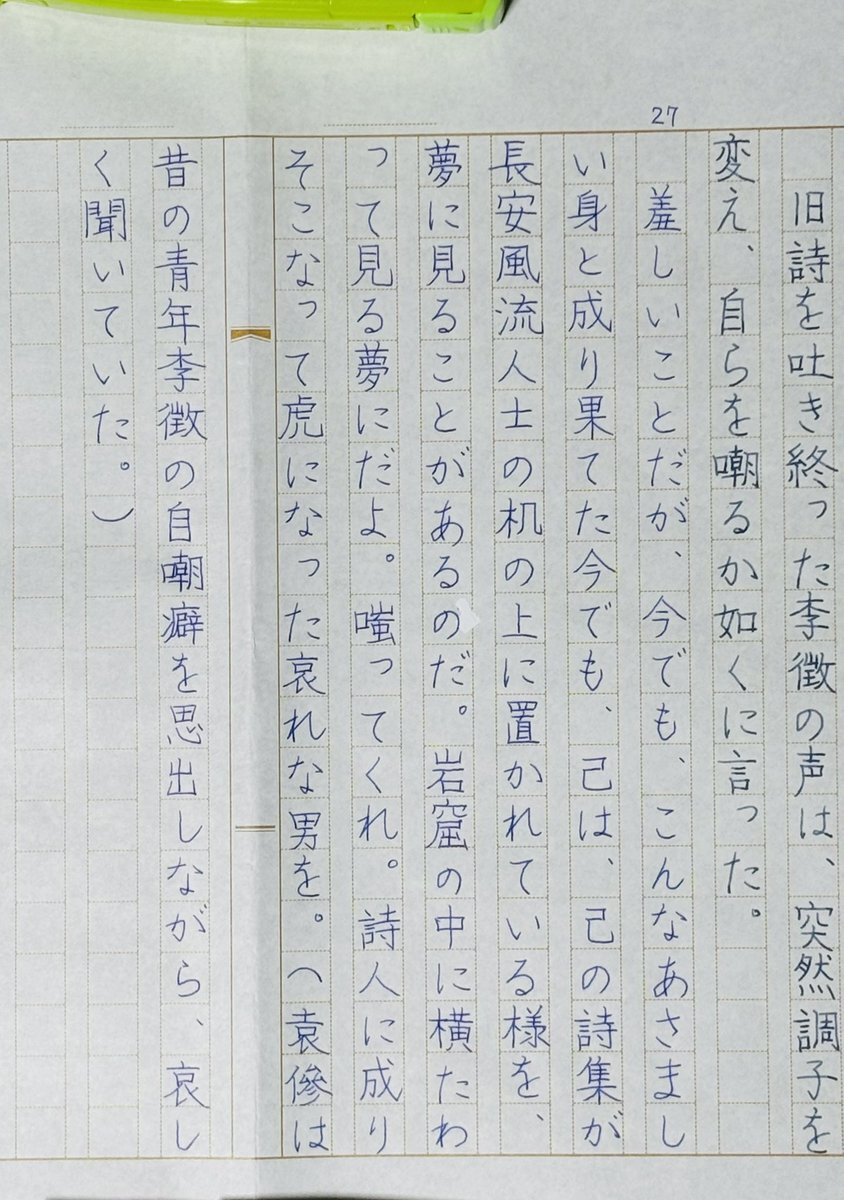 27
旧詩を吐き終った李徴の声は、突然調子を
変え、自らを嘲るか如くに言った。
羞しいことだが、今でも、こんなあさまし
い身と成り果てた今でも、己は、己の詩集が
長安風流人士の机の上に置かれている様を、
夢に見ることがあるのだ。岩窟の中に横たわ
って見る夢にだよ。嗤ってくれ。詩人に成り
そこなって虎になった哀れな男を。(袁傪は
昔の青年李徴の自嘲癖を思出しながら、哀し
く聞いていた。)